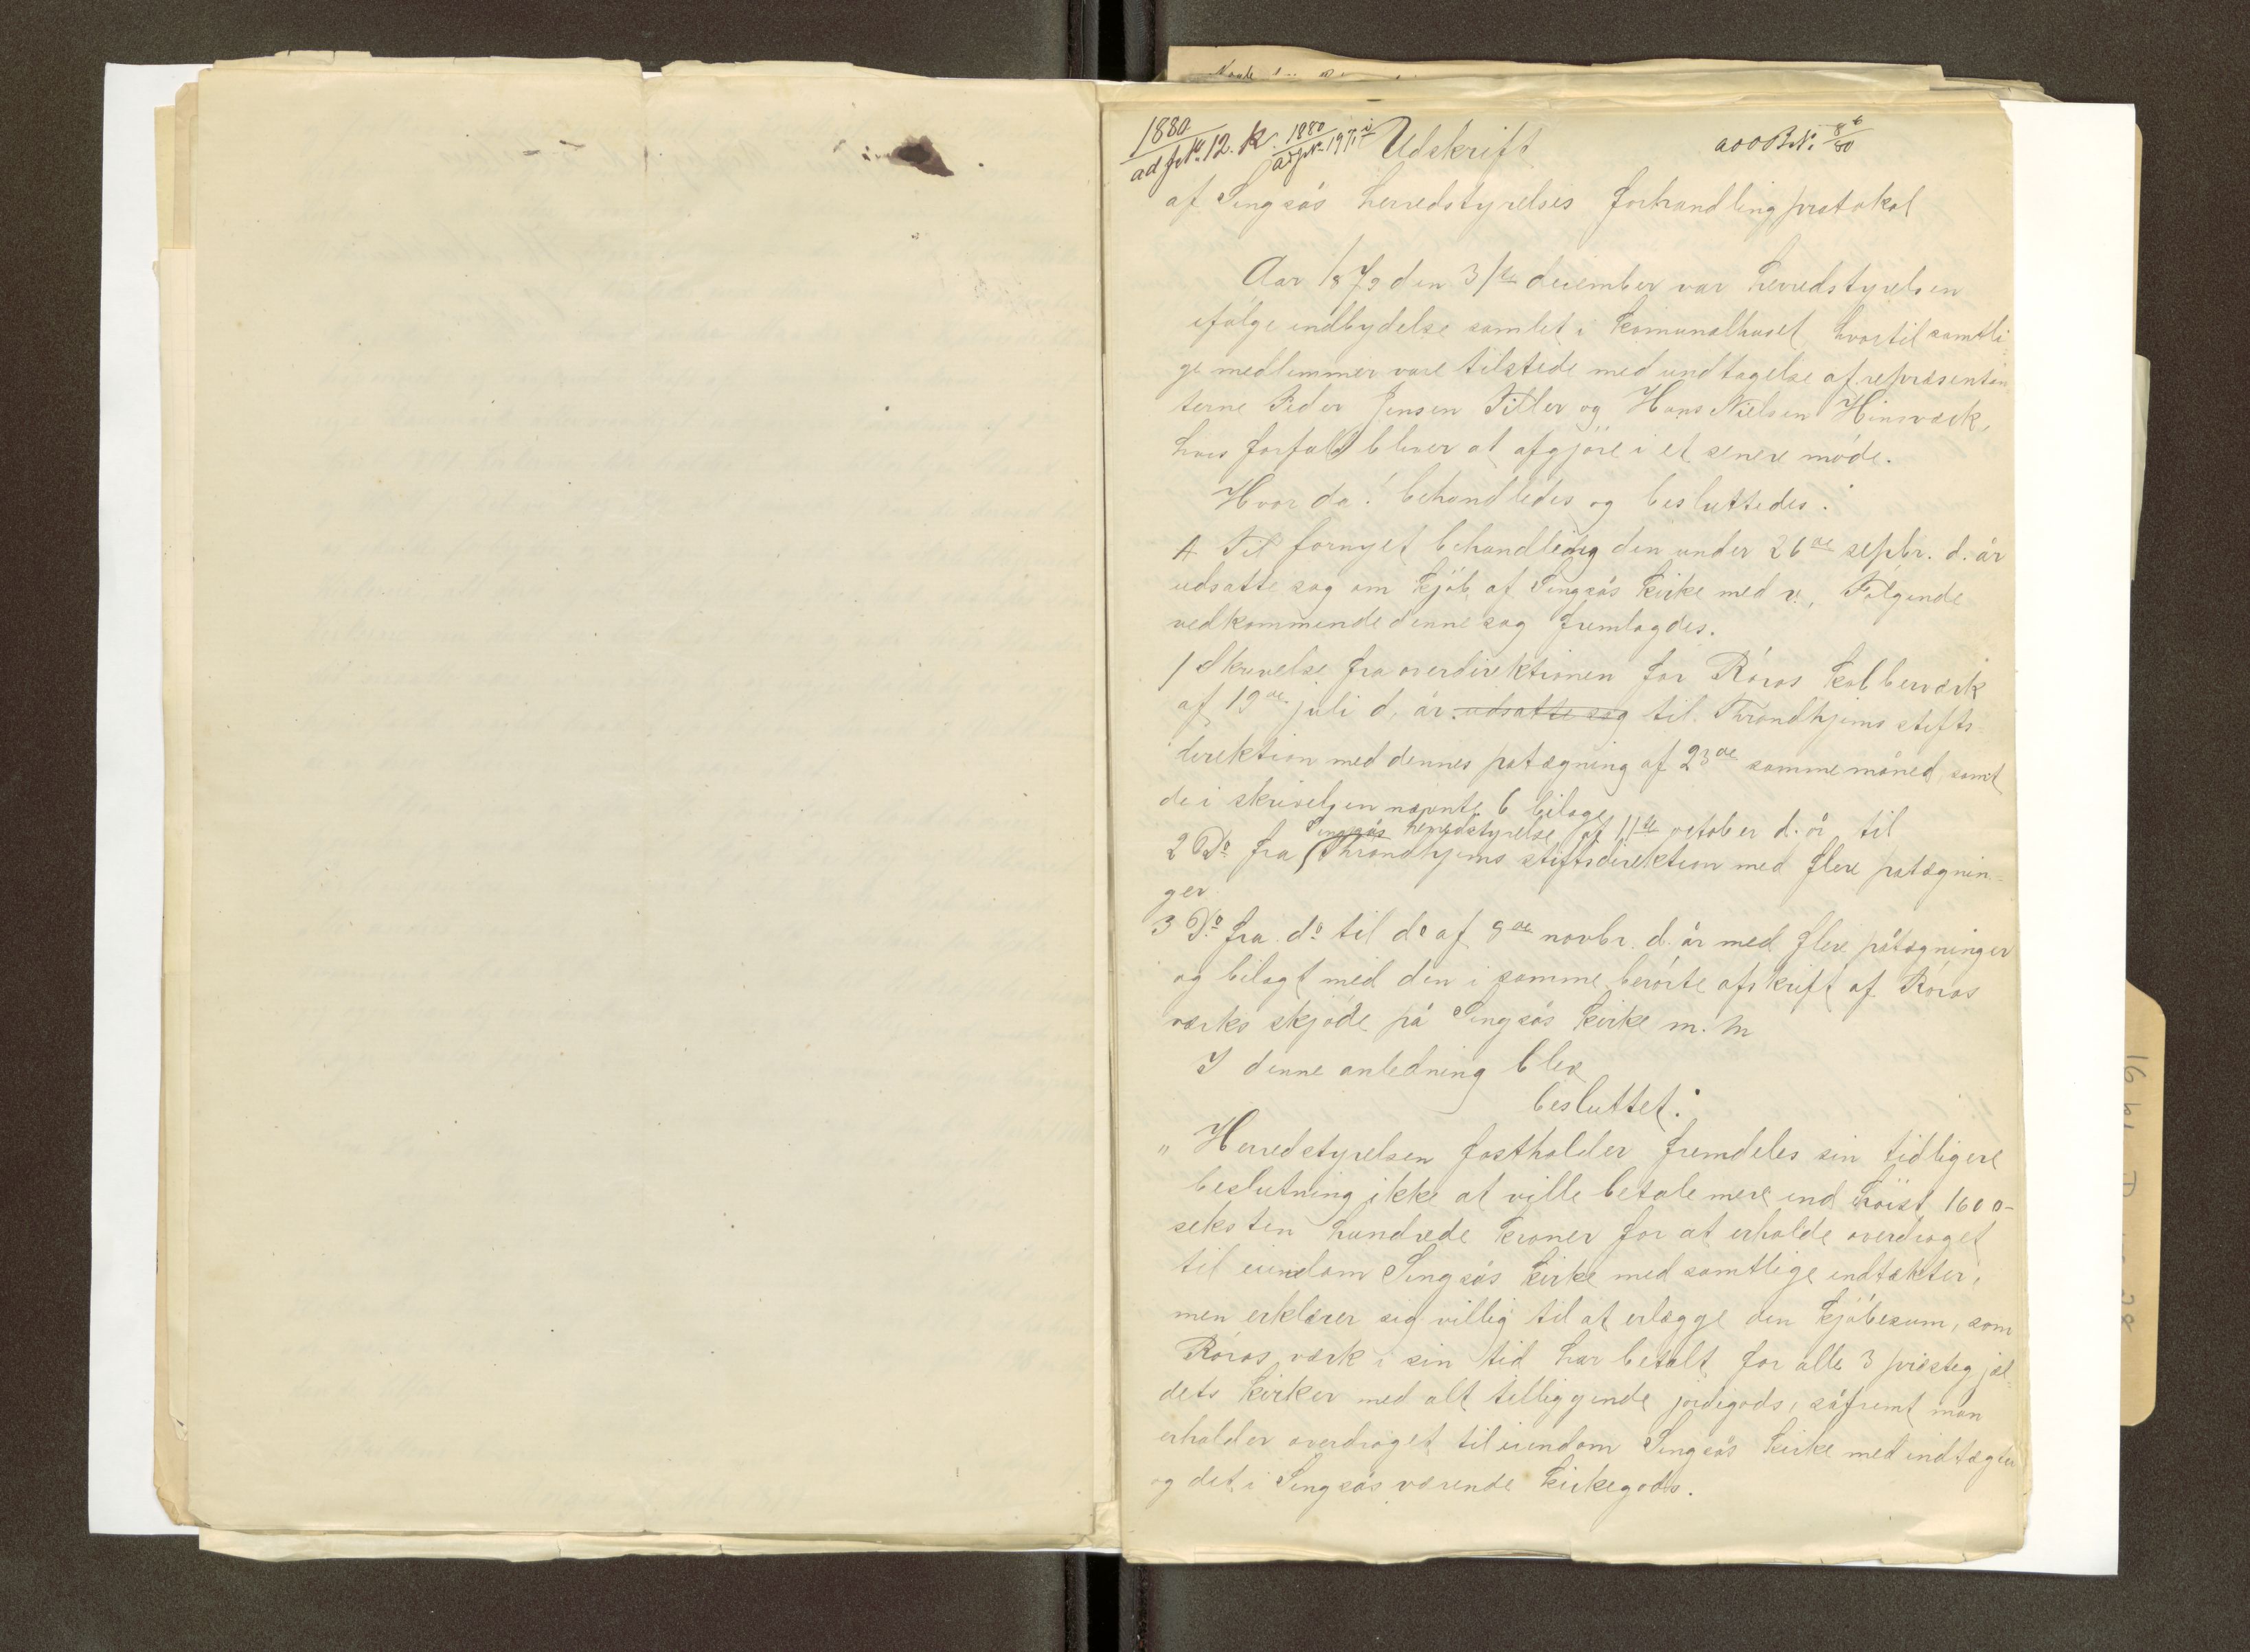 1880
ad jr No 12. K.
1880
ad jr No 197
Udskrift
8/6
80
af Singsås herredstyrelses forhandlingsprotokol
Aar 1879 den 31te december var herredstyrelsen
ifølge indbydelse samlet i komunalhuset hvortil samtli-
ge medlemmer vare tilstede med undtagelse af repræsentan
terne Peder Jensen Tiller og Hans Nielsen
hvis forfald bliver at afgjöre i et senere möde.
Hvor da! behandledes og besluttedes:
A Til fornyet behandling den under 26de septbr. d. år
udsatte sag om kjöb af Singsås kirke med v., Fölgende
vedkommende denne sag fremlagdes.
1 Skrivelse fra overdirektionen for Röros kobberværk
af 19de juli d. år. udsatte sag til Throndhjems stifts-
direktion med dennes påtægning af 23de samme måned samt
de i skrivelsen nævnte 6 bilage
Singsås herredstyrelse af 11te october d. år til
2 Do fra Throndhjems stiftsdirektion med flere påtægnin-
ger
3 Do fra do til do af 9de novbr. d. år med flere påtægninger
og bilagt med den i samme berörte afskrift af Röros
værks skjöde på Singsås kirke m. m
I denne anledning blev
besluttet:
" Herredstyrelsen fastholder fremdeles sin tidligere
beslutning ikke at ville betale mere end höist 1600-
seksten hundrede kroner for at erholde overdraget
til eiendom Singsås kirke med samtlige indtækter,
men erklærer sig villig til at erlægge den kjöbesum, som
Röros værk i sin tid har betalt for alle 3 præstegjæl-
dets kirker med alt tilliggende jordegods, såfremt man
erholder overdraget til eiendom Singsås kirke med indtægter
og det i Singsås værende kirkegods.